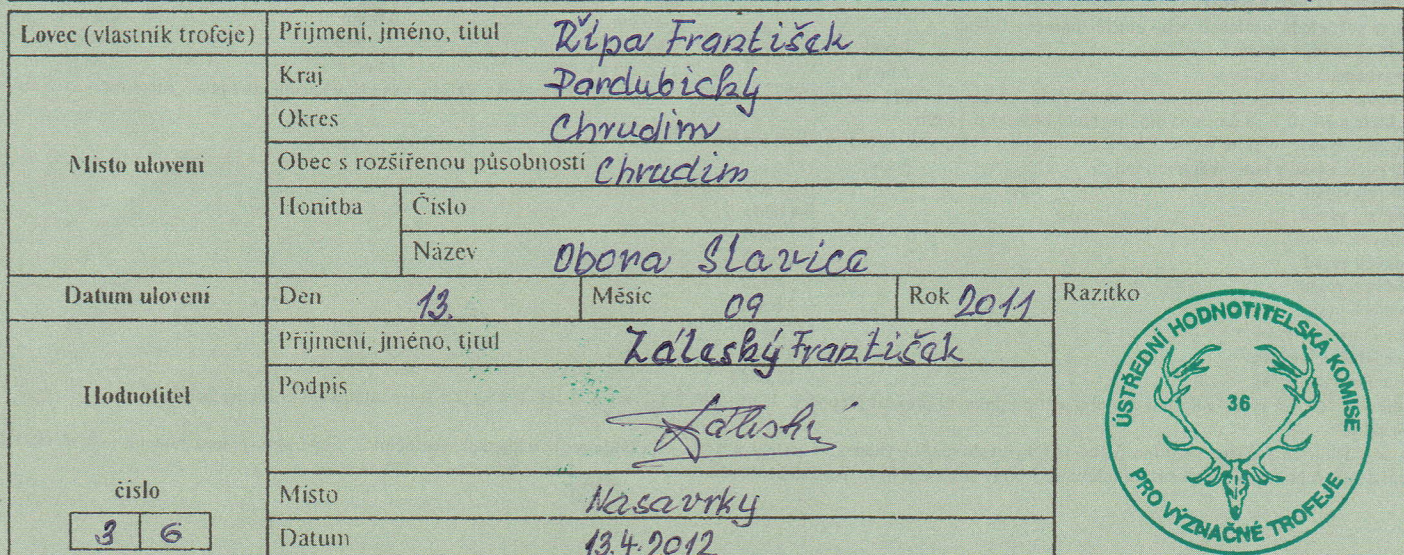 Lovec (vlastník trofeje) Příjmení, jméno, titul Řípa František
Kraj Pardubický
Okres Chrudim
Místo ulovení Obec s rozšířenou působností Chrudim
Honitba Číslo
Název Obora Slavice
Datum ulovení Den 13. Měsíc 09 Rok 2011 Razítko
Příjmení, jméno, titul Záleský František
Hodnotitel Podpis Záleský
číslo Místo Nasavrky
3 6 Datum 13.4.2012
ÚSTŘEDNÍ HODNOTITELSKÁ KOMISE
36
PRO VÝZNAČNÉ TROFEJE